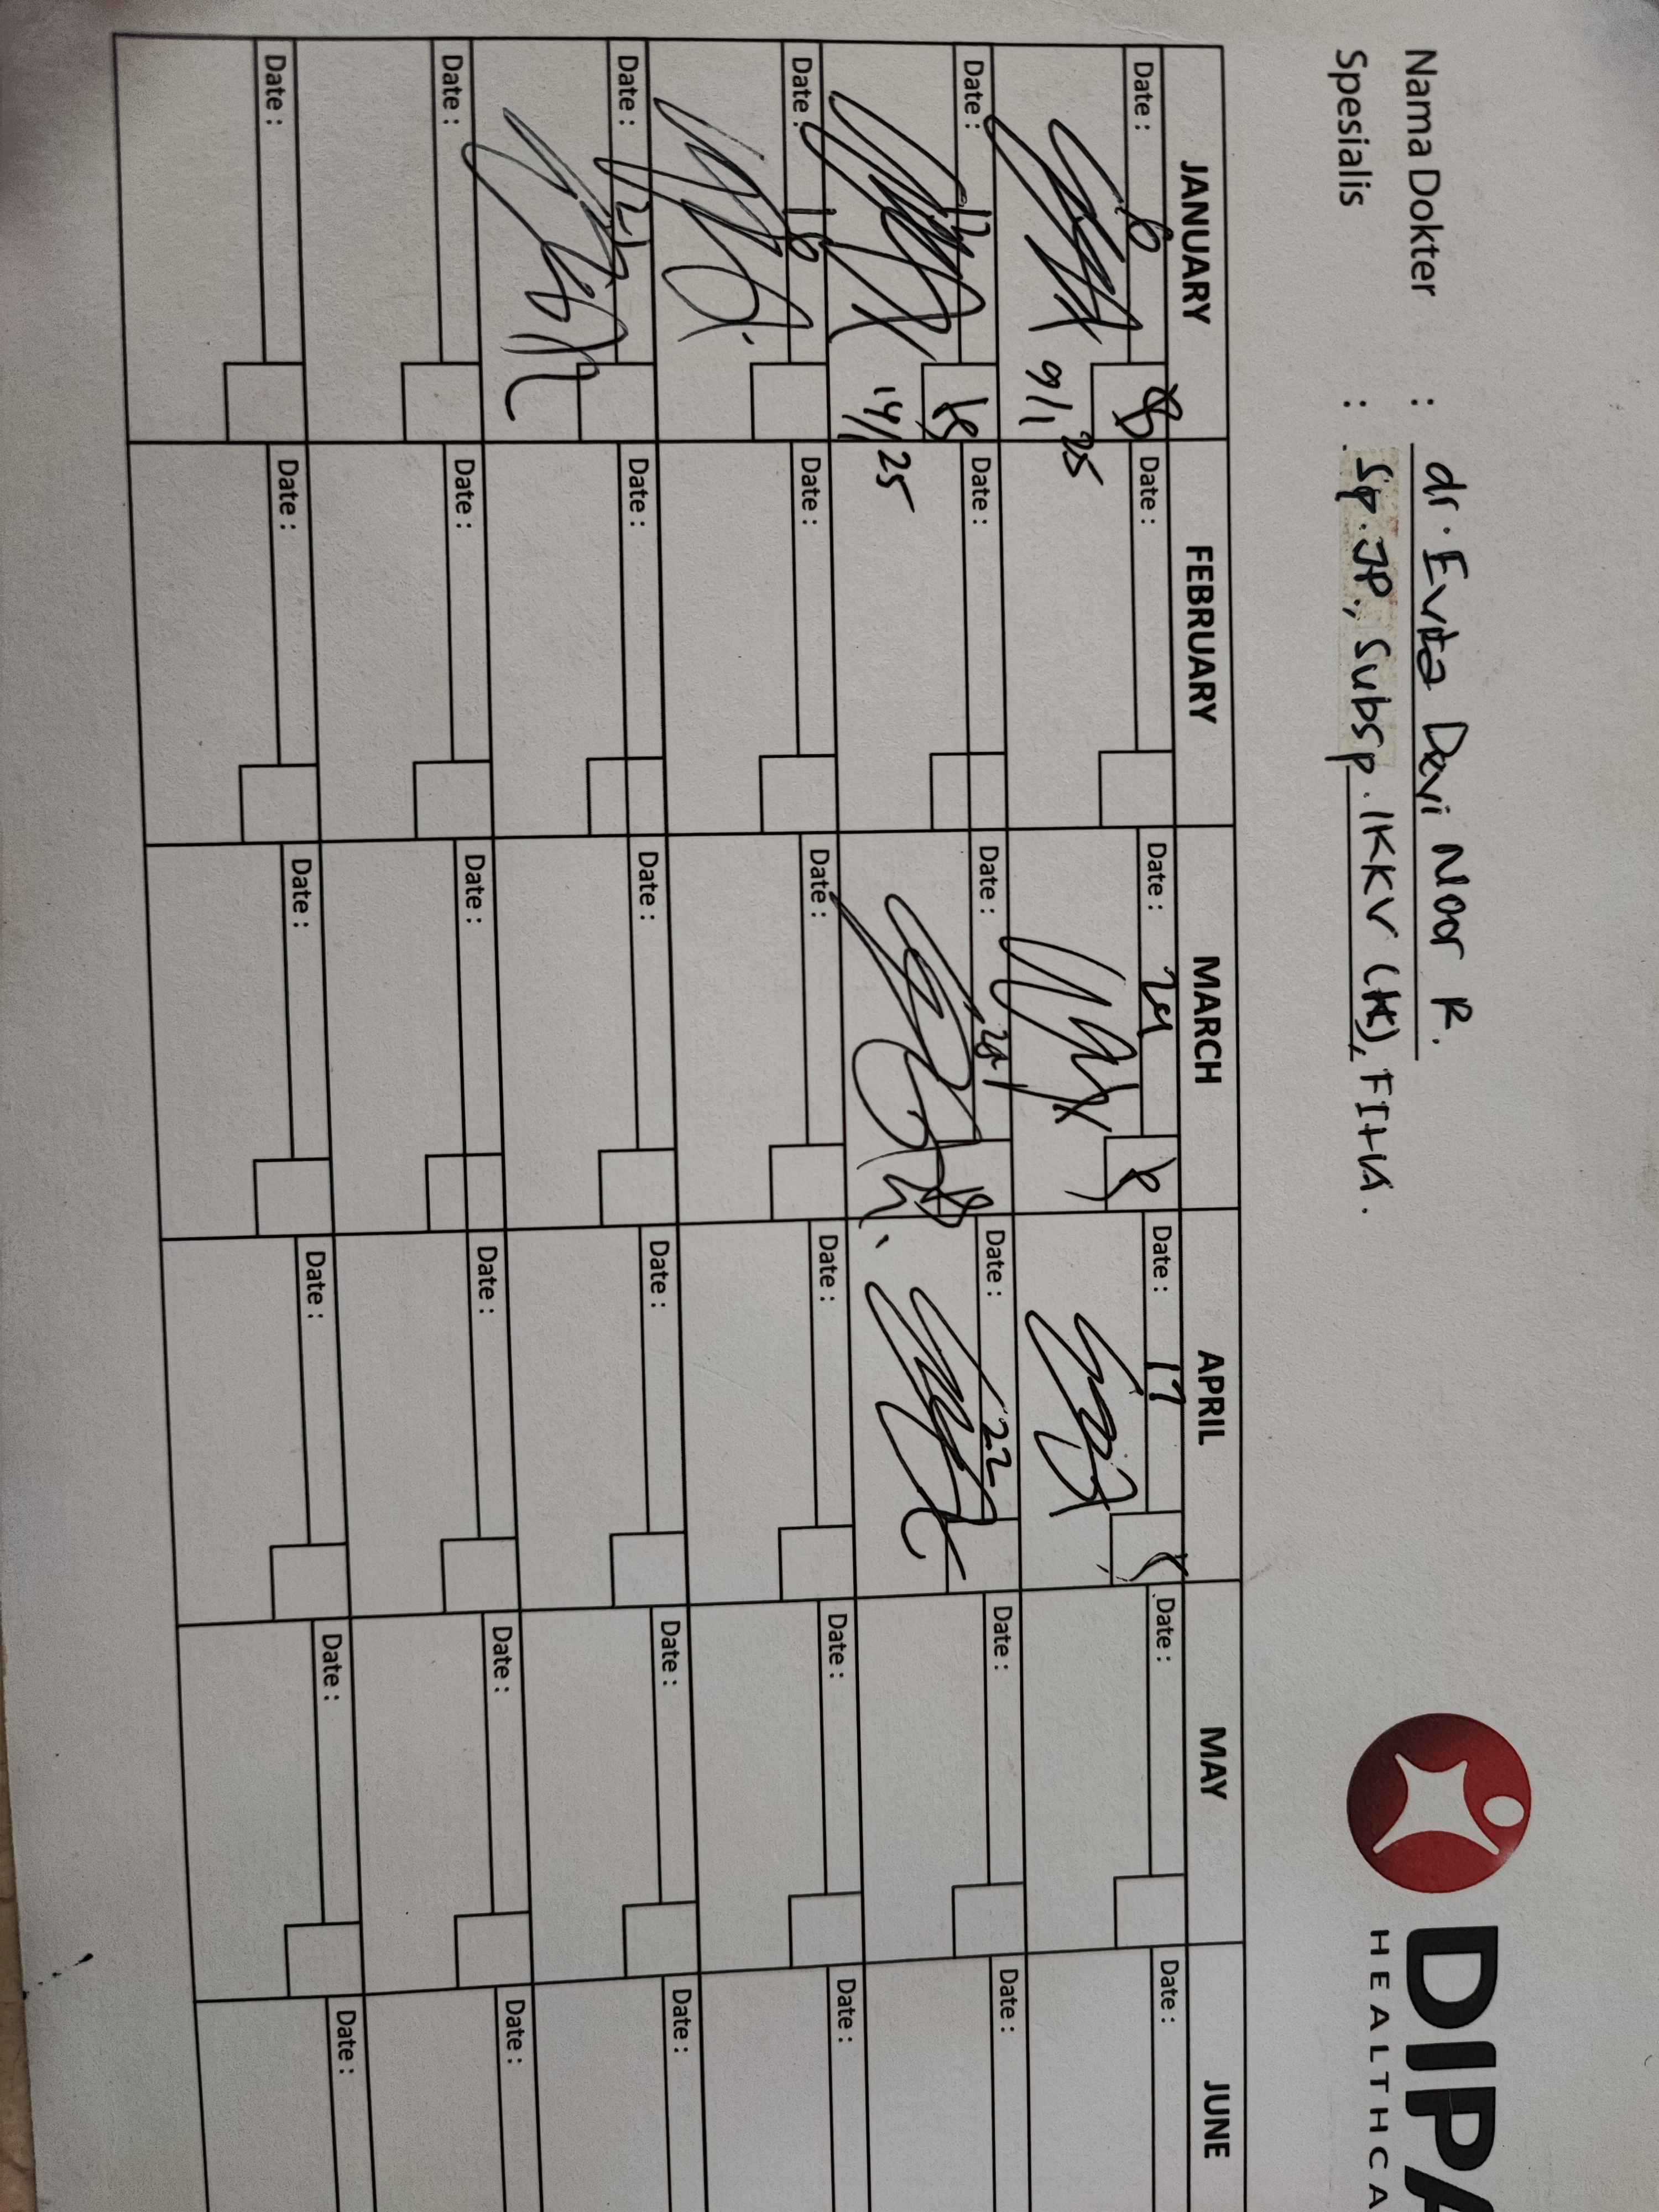 Nama Dokter : dr. Evita Devi Noor R.
Spesialis : Sp.JP., Subsp. IKKV (K), FIHA.
DIPA
HEALTHCA
JANUARY FEBRUARY MARCH APRIL MAY JUNE
Date : 6 Date : Date : 24 Date : 17 Date : Date :
9/1 25
Date : 13 Date : Date : 26 Date : 22 Date : Date :
14/1 25
Date : 16 Date : Date : Date : Date : Date :
Date : 21 Date : Date : Date : Date : Date :
Date : Date : Date : Date : Date : Date :
Date : Date : Date : Date : Date : Date :